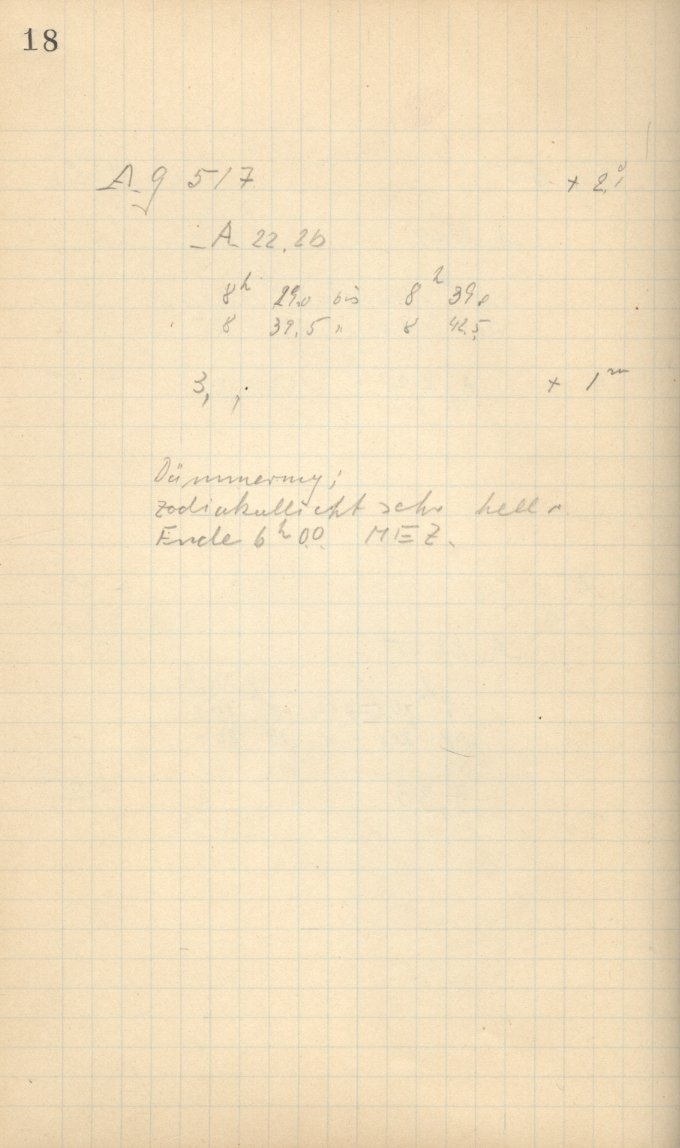 18
A g 517 + 2,
A 22.2b
8h 29.0 bis 8h 39.0
8 39.5 " 8 42.5
3, + 1m
Dämmerung;
Zodiakallicht sehr hell.
Ende 6h 00 MEZ.